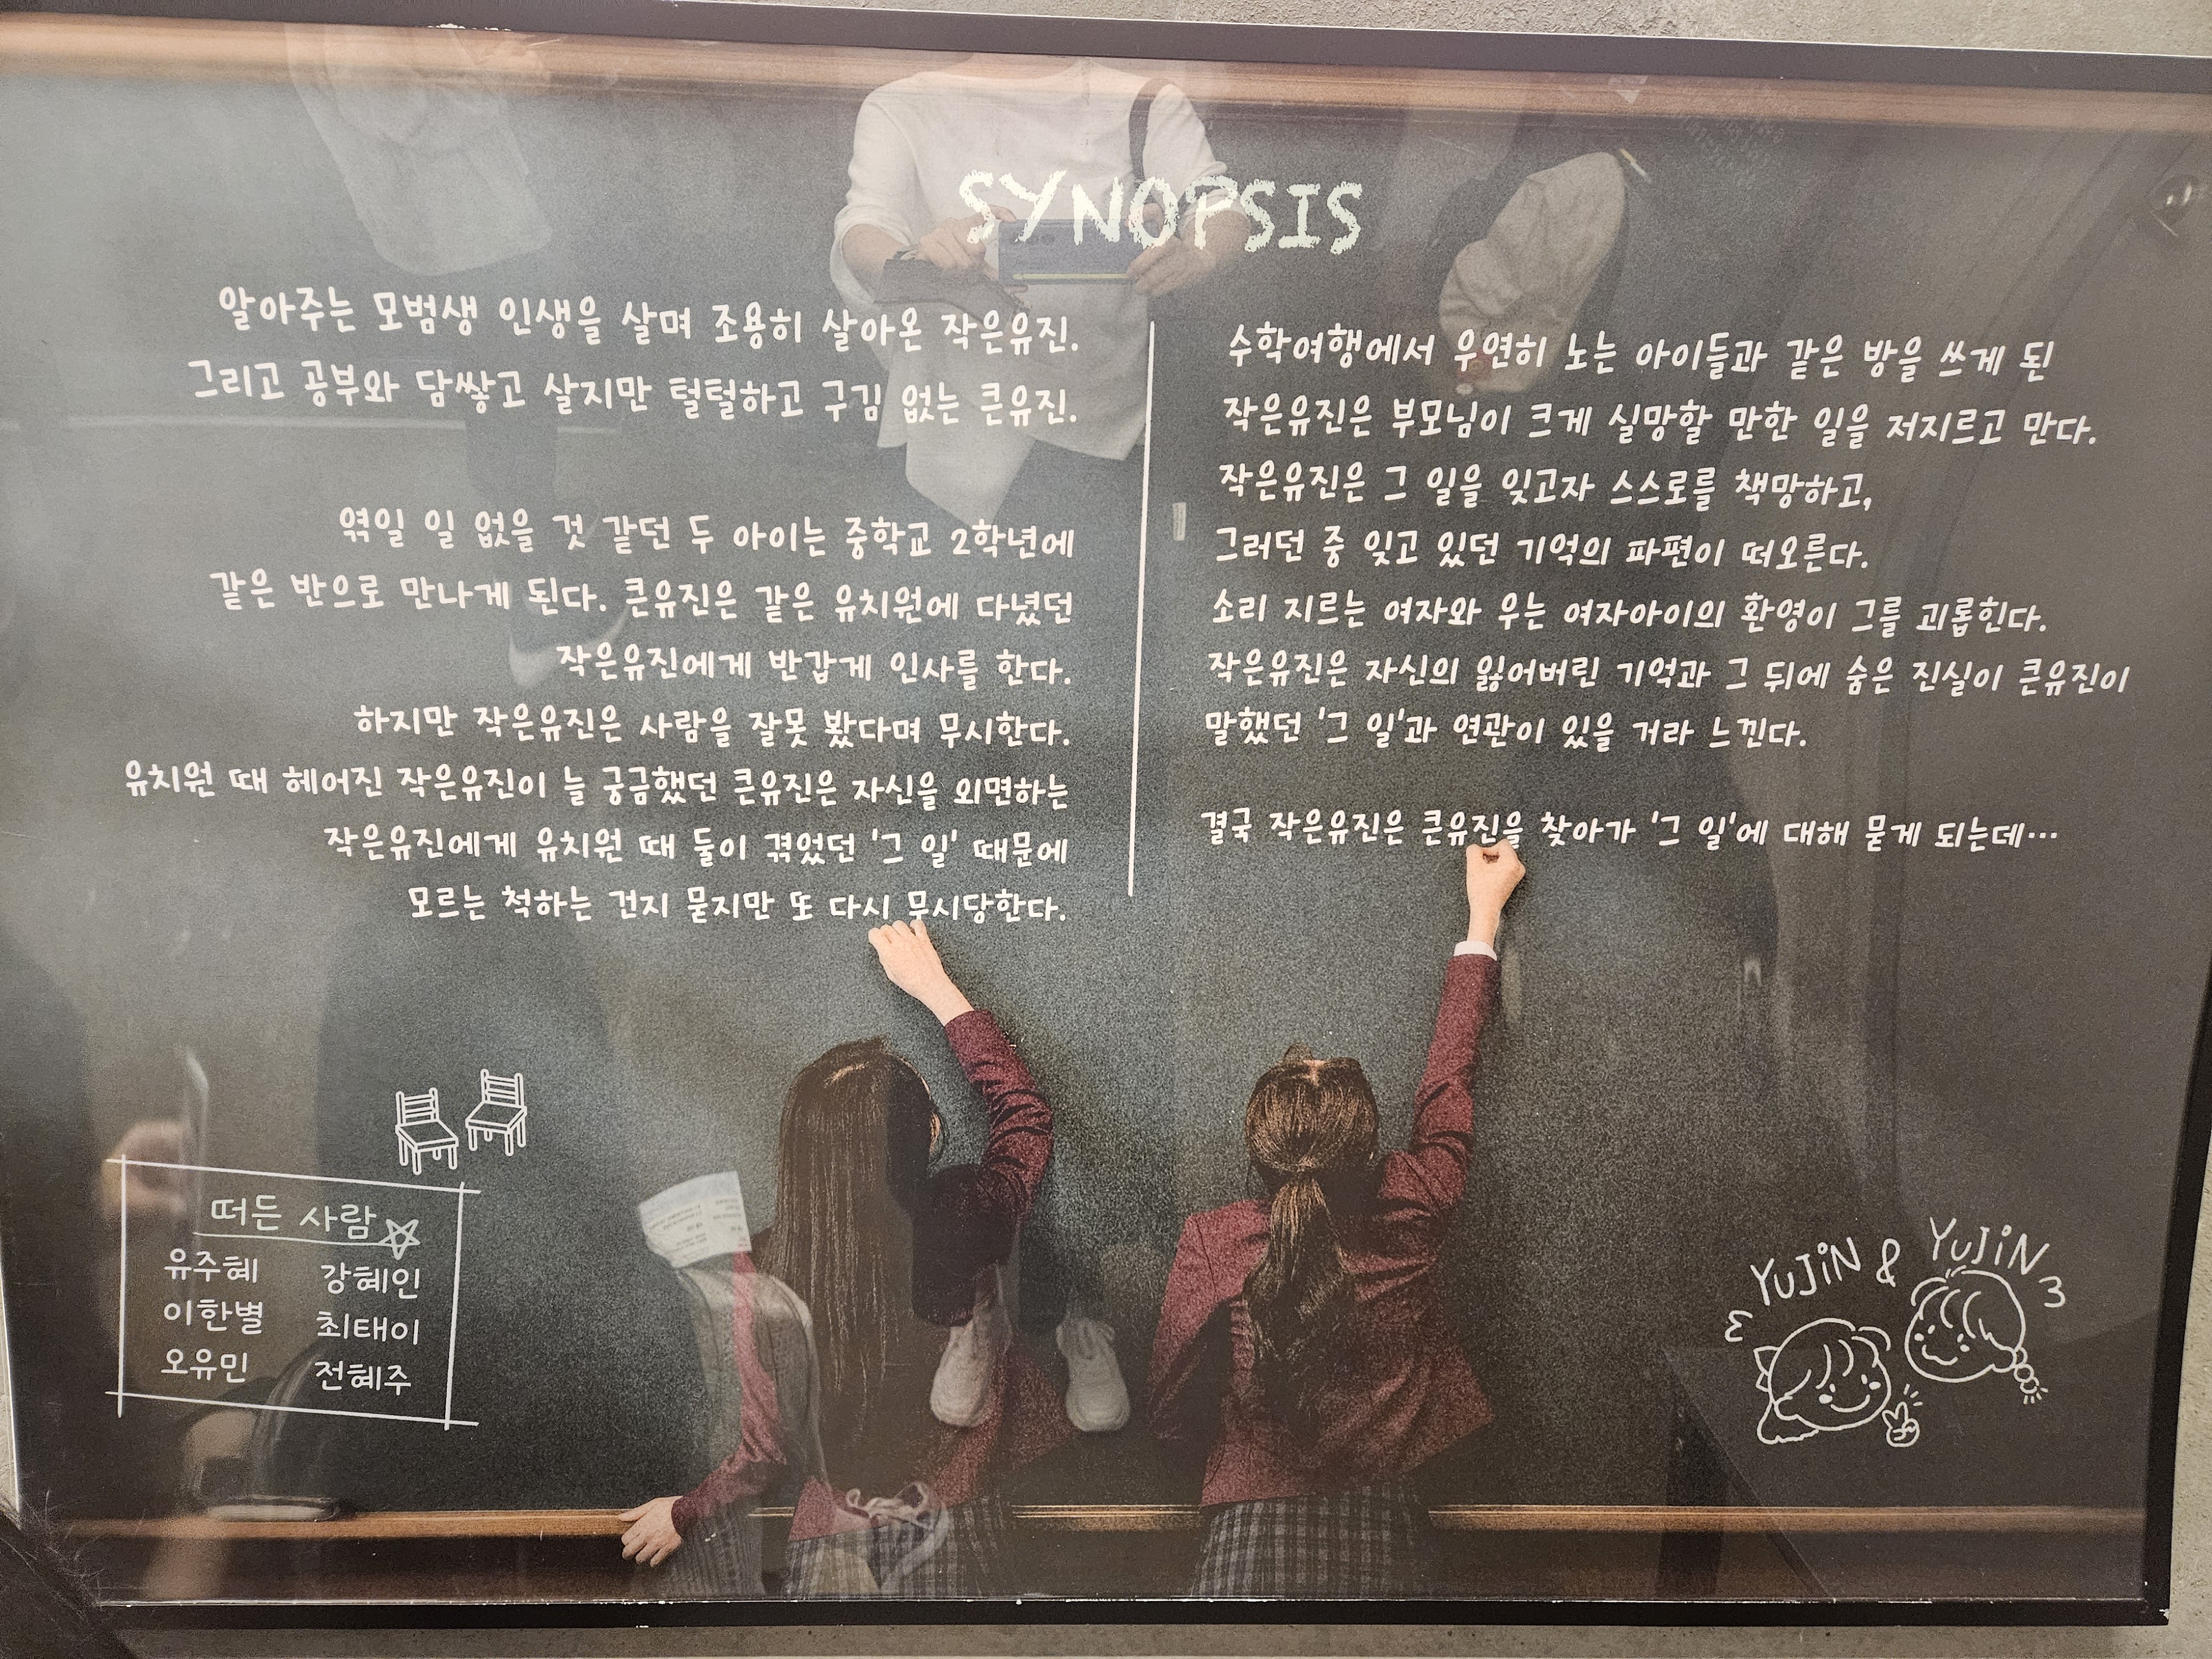 SYNOPSIS
알아주는 모범생 인생을 살며 조용히 살아온 작은유진.
그리고 공부와 담쌓고 살지만 털털하고 구김 없는 큰유진.
엮일 일 없을 것 같던 두 아이는 중학교 2학년에
같은 반으로 만나게 된다. 큰유진은 같은 유치원에 다녔던
작은유진에게 반갑게 인사를 한다.
하지만 작은유진은 사람을 잘못 봤다며 무시한다.
유치원 때 헤어진 작은유진이 늘 궁금했던 큰유진은 자신을 외면하는
작은유진에게 유치원 때 둘이 겪었던 '그 일' 때문에
모르는 척하는 건지 묻지만 또 다시 무시당한다.
수학여행에서 우연히 노는 아이들과 같은 방을 쓰게 된
작은유진은 부모님이 크게 실망할 만한 일을 저지르고 만다.
작은유진은 그 일을 잊고자 스스로를 책망하고,
그러던 중 잊고 있던 기억의 파편이 떠오른다.
소리 지르는 여자와 우는 여자아이의 환영이 그를 괴롭힌다.
작은유진은 자신의 잃어버린 기억과 그 뒤에 숨은 진실이 큰유진이
말했던 '그 일'과 연관이 있을 거라 느낀다.
결국 작은유진은 큰유진을 찾아가 '그 일'에 대해 묻게 되는데…
떠든 사람
유주혜 강혜인
이한별 최태이
오유민 전혜주
YUJiN & YUJiN